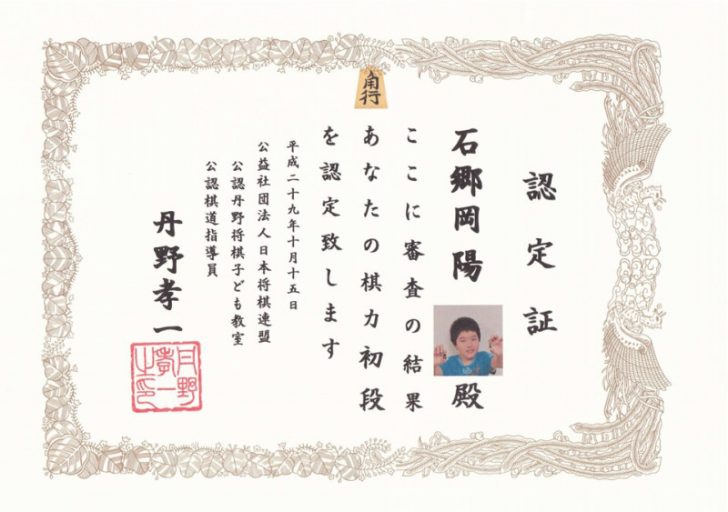 認定証
石郷岡陽 殿
ここに審査の結果
あなたの棋力初段
を認定致します
角行
平成二十九年十月十五日
公益社団法人日本将棋連盟
公認丹野将棋子ども教室
公認棋道指導員
丹野孝一
丹野
孝一
之印